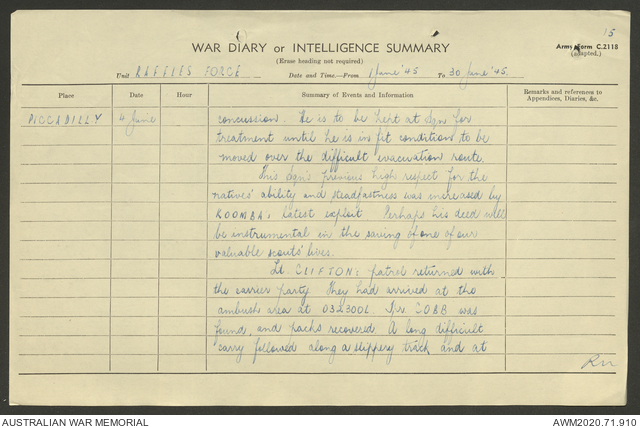 15
WAR DIARY or INTELLIGENCE SUMMARY
Army Form C.2118
(adapted.)
(Erase heading not required)
Unit RAFFLES FORCE Date and Time.—From 1 June '45 To 30 June '45.
Place Date Hour Summary of Events and Information Remarks and references to
Appendices, Diaries, &c.
PICCADILLY 4 June concussion. He is to be kept at Sqn for
treatment until he is in fit conditions to be
moved over the difficult evacuation route.
This Sqn's previous high respect for the
natives' ability and steadfastness was increased by
KOOMBA's latest exploit. Perhaps his deed will
be instrumental in the saving of one of our
valuable scouts' lives.
Lt. CLIFTON's patrol returned with
the carrier party. They had arrived at the
ambush area at 032300L. Tpr. COBB was
found, and packs recovered. A long difficult
carry followed along a slippery track and at
AUSTRALIAN WAR MEMORIAL
AWM2020.71.910